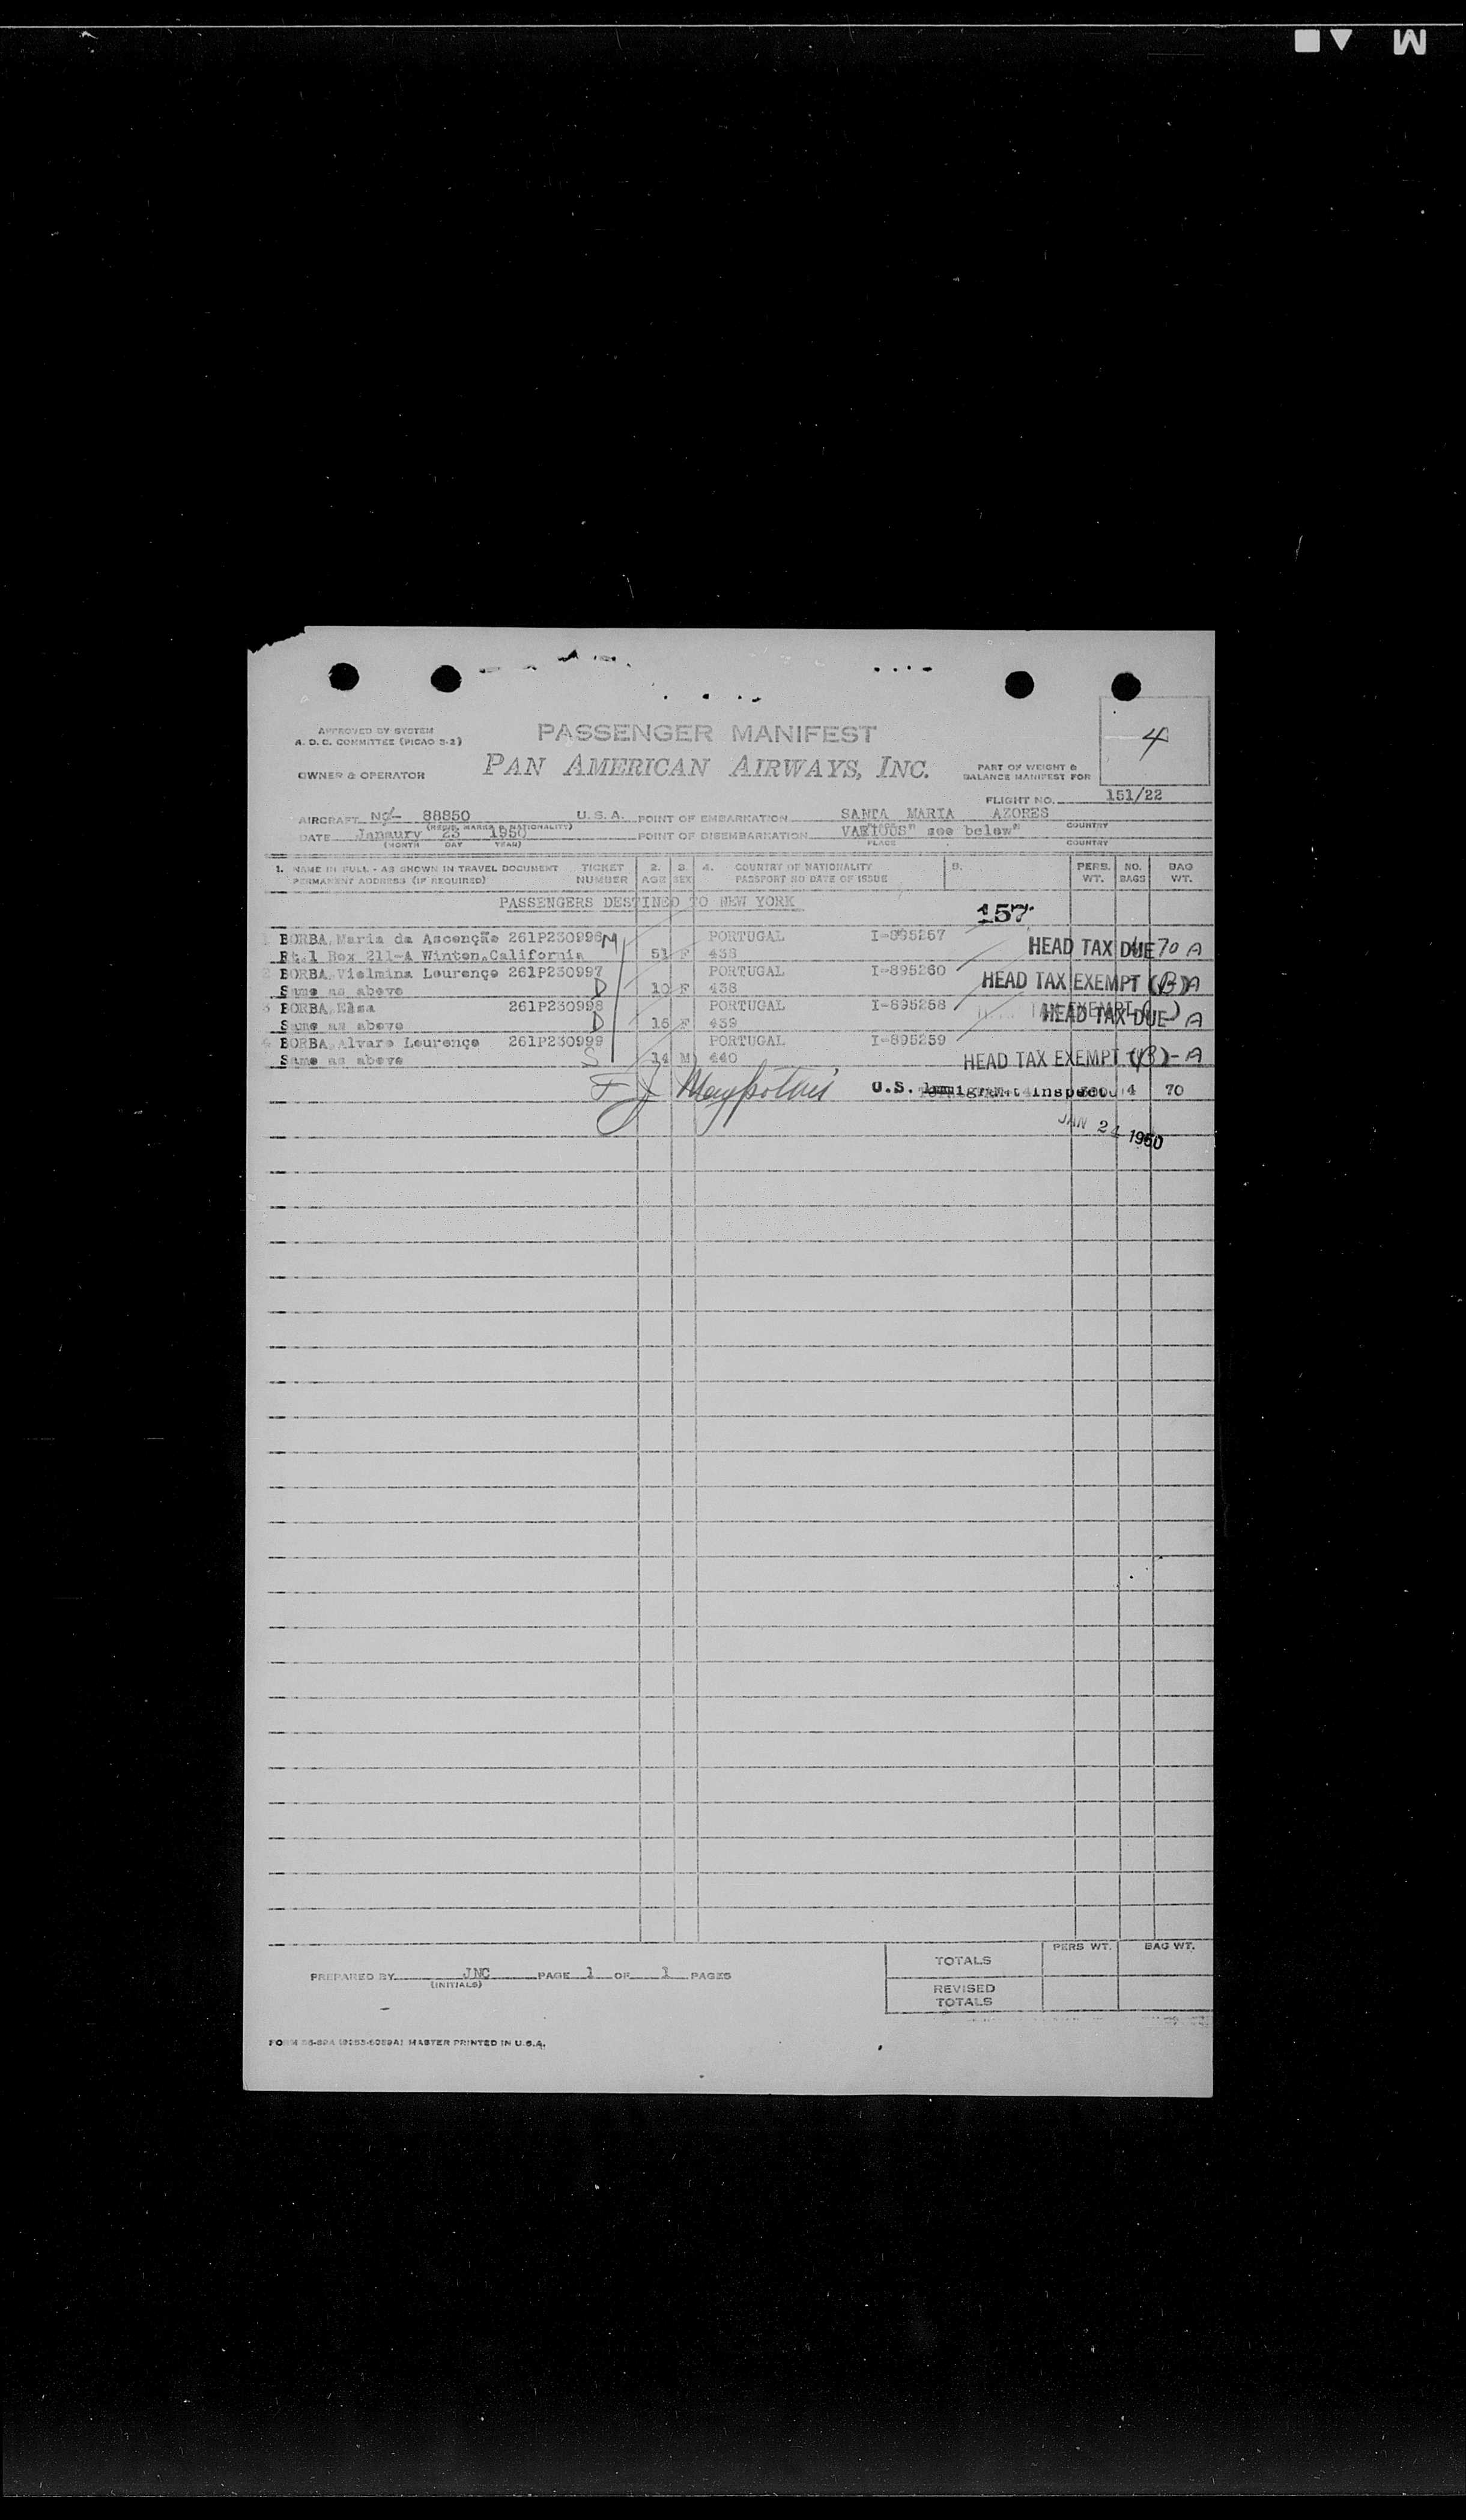 APPROVED BY SYSTEM
A. D. C. COMMITTEE (PICAO 5-2)
PASSENGER MANIFEST
PAN AMERICAN AIRWAYS, INC.
OWNER & OPERATOR
PART OF WEIGHT &
BALANCE MANIFEST FOR
4
FLIGHT NO. 151/22
AIRCRAFT 88850 U.S.A. POINT OF EMBARKATION SANTA MARIA AZORES
(REGIS. MARKS & NATIONALITY) PLACE COUNTRY
DATE Janaury 23 1950 POINT OF DISEMBARKATION VARIOUS" see below"
(MONTH DAY YEAR) PLACE COUNTRY
1. NAME IN FULL - AS SHOWN IN TRAVEL DOCUMENT TICKET 2. 3. 4. COUNTRY OF NATIONALITY 5. PERS. NO. BAG
PERMANENT ADDRESS (IF REQUIRED) NUMBER AGE SEX PASSPORT NO DATE OF ISSUE WT. BAGS WT.
PASSENGERS DESTINED TO NEW YORK
157
1 BORBA, Maria da Ascenção 261P230996 M PORTUGAL I-895257
Rt.1 Box 211-A Winton, California 51 F 438 HEAD TAX DUE 70 A
2 BORBA, Vielmina Lourenço 261P230997 PORTUGAL I-895260
Same as above D 10 F 438 HEAD TAX EXEMPT (B) A
3 BORBA, 261P230998 PORTUGAL I-895258
Same as above D 16 F 439 HEAD TAX DUE A
4 BORBA, Alvaro Lourenço 261P230999 PORTUGAL I-895259
Same as above S 14 M 440 HEAD TAX EXEMPT (B) - A
F J U.S. Immigrant Inspector 4 70
JAN 24 1950
TOTALS PERS WT. BAG WT.
PREPARED BY JNC PAGE 1 OF 1 PAGES
(INITIALS)
REVISED
TOTALS
MASTER PRINTED IN U.S.A.